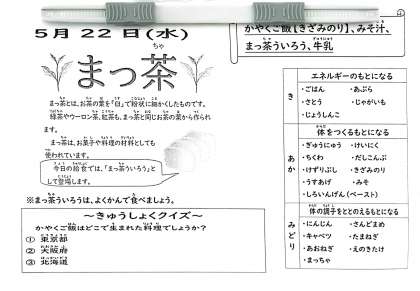 5月22日(水)
まっ茶
ちゃ
まっ茶とは、お茶の葉を「臼」で粉状に細かくしたものです。
緑茶やウーロン茶、紅茶も、まっ茶と同じお茶の葉から作られ
ます。
まっ茶は、お菓子や料理の材料としても
使われています。
今日の給食では、「まっ茶ういろう」と
して登場します。
※まっ茶ういろうは、よくかんで食べましょう。
～きゅうしょくクイズ～
かやくご飯はどこで生まれた料理でしょうか?
① 東京都
② 大阪府
③ 北海道
かやくご飯【きざみのり】、みそ汁、
まっ茶ういろう、牛乳
き
エネルギーのもとになる
・ごはん ・あぶら
・さとう ・じゃがいも
・じょうしんこ
あか
体をつくるもとになる
・ぎゅうにゅう ・けいにく
・ちくわ ・だしこんぶ
・けずりぶし ・きざみのり
・うすあげ ・みそ
・しろいんげん(ペースト)
みどり
体の調子をととのえるもとになる
・にんじん ・さんどまめ
・キャベツ ・たまねぎ
・あおねぎ ・えのきたけ
・まっちゃ